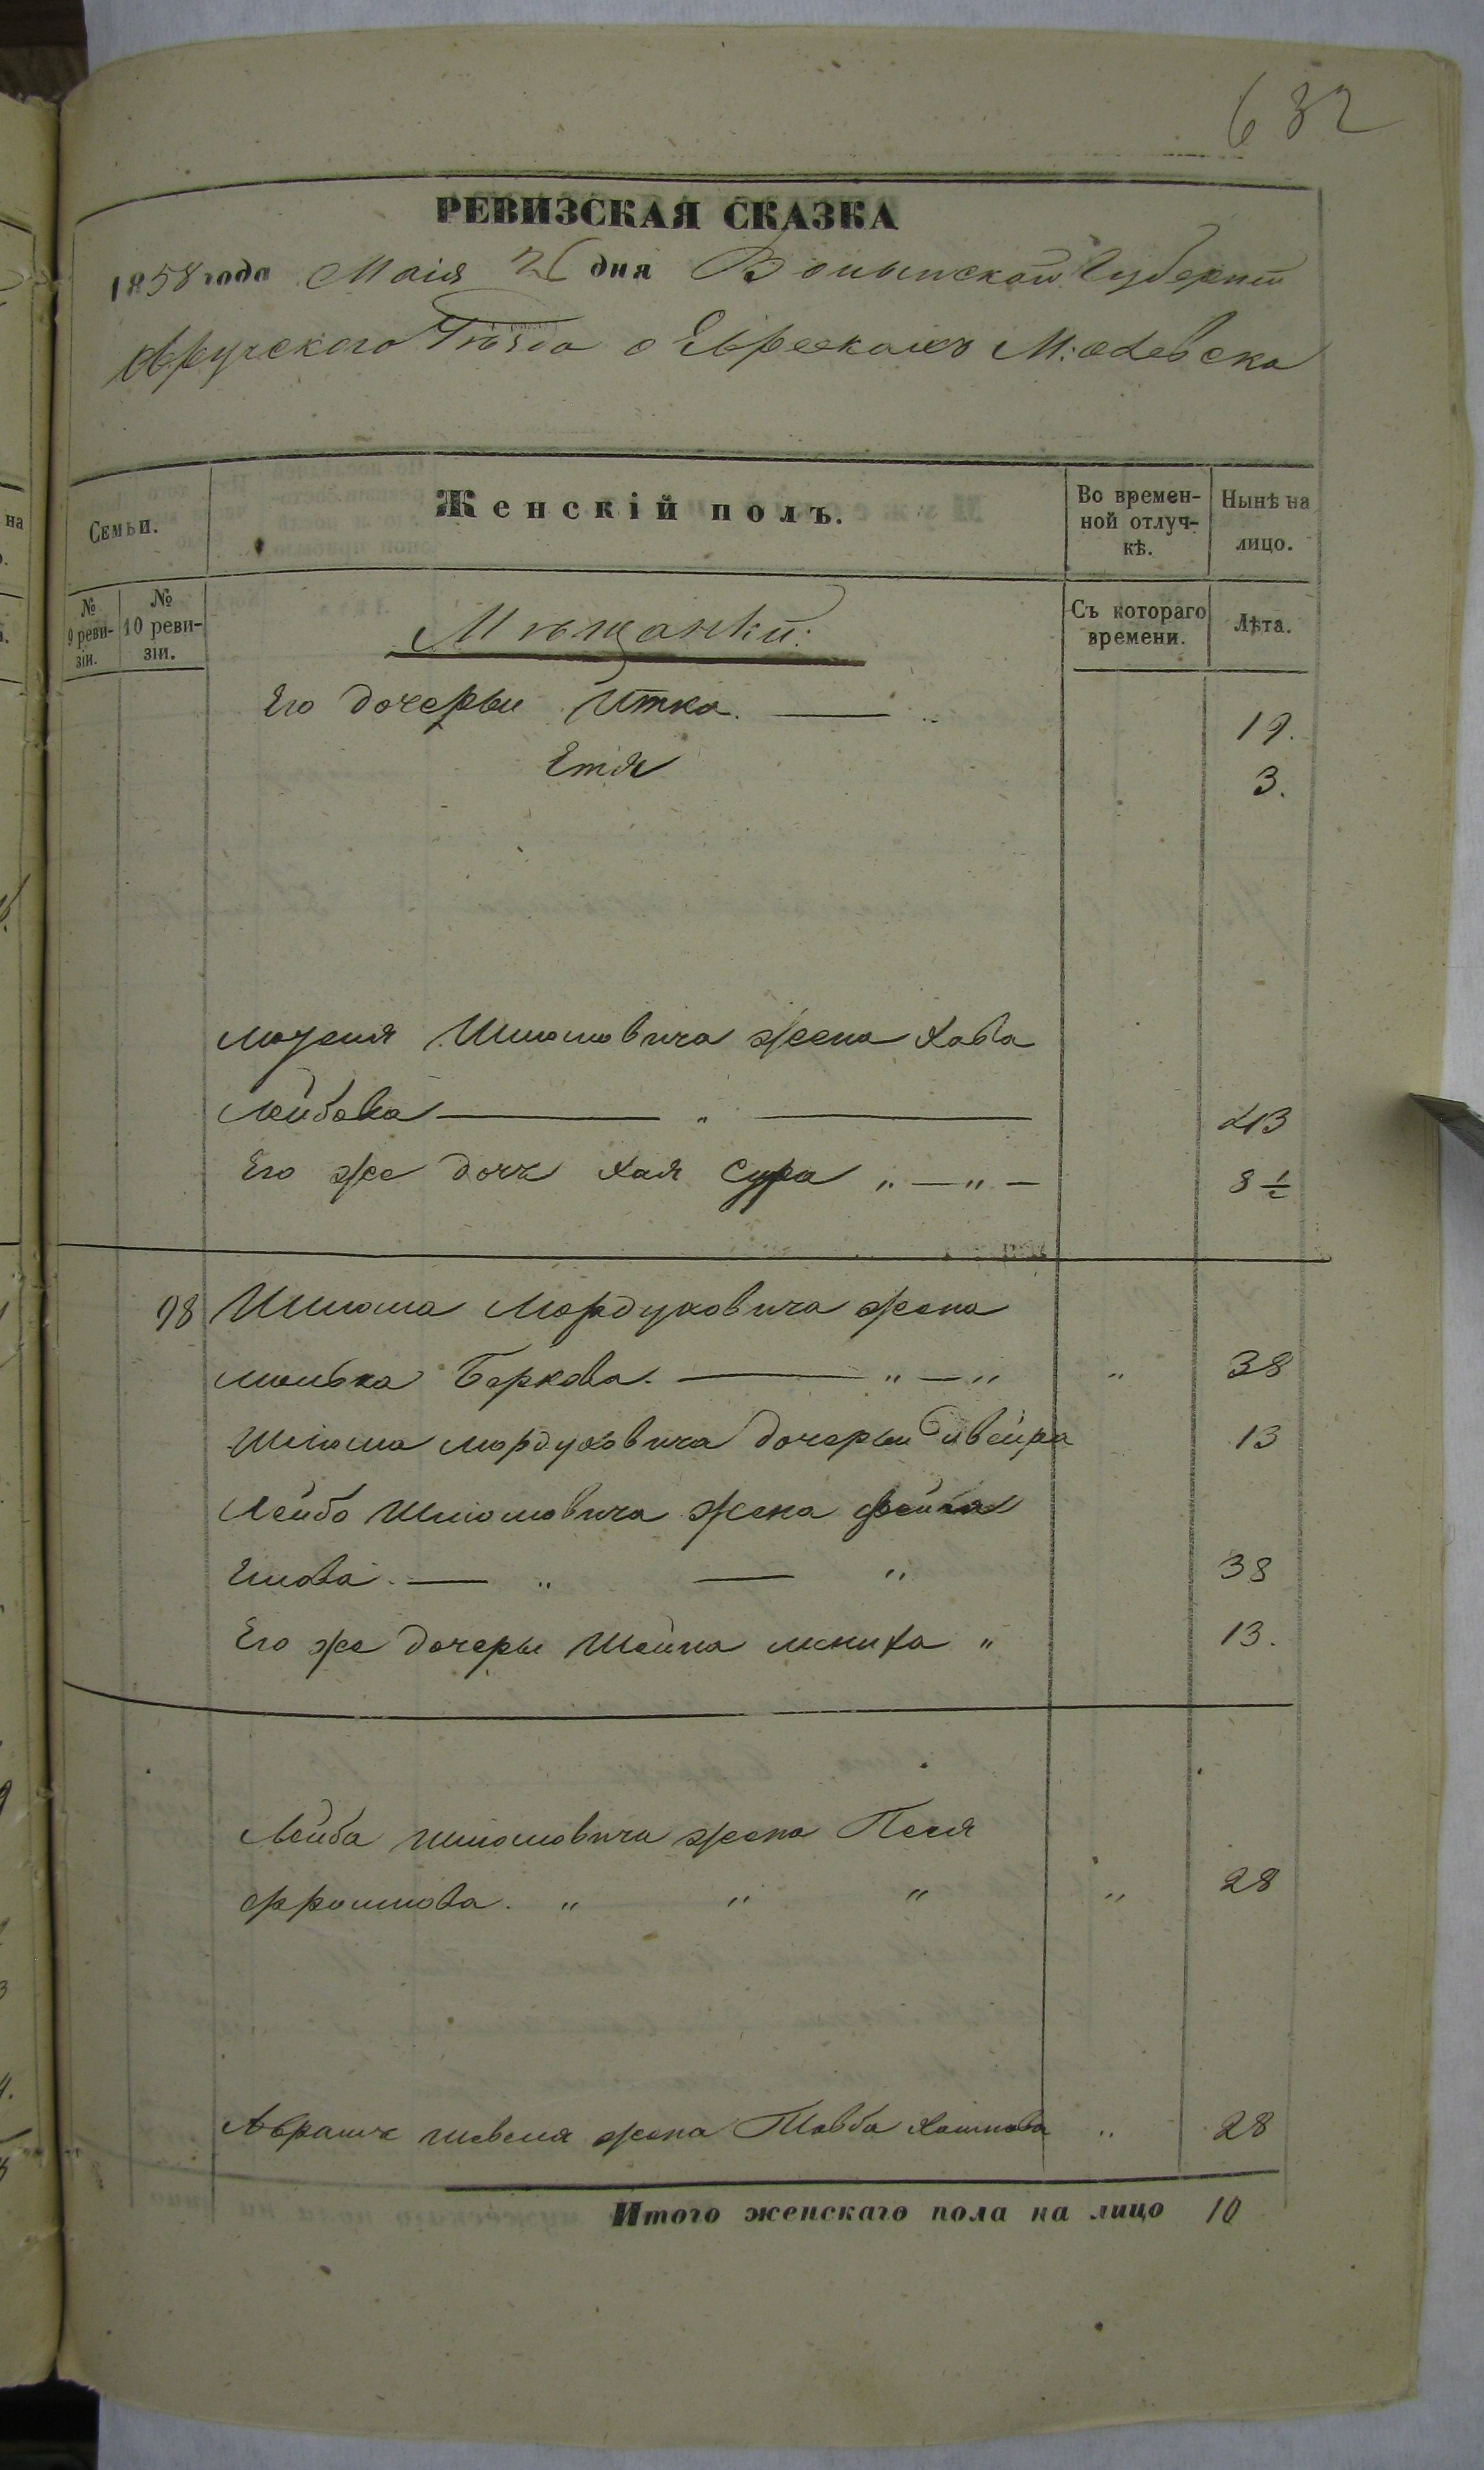 632
РЕВИЗСКАЯ СКАЗКА
1858 года Маія 26 дня Волынской Губерніи
Овручского Уѣзда о Еврейкахъ М: Олевска
Семьи.
Женскій полъ.
Во времен-
ной отлуч-
кѣ.
Нынѣ на
лицо.
№
9 реви-
зіи.
№
10 реви-
зіи.
Съ котораго
времени.
Лѣта.
Мѣщанки:
Его дочерьи Итка. 19.
Етля 3.
Шліомовича жена Хава
Лейбова 43
Его же дочь Хая Сура " — " — 8 1/2
98 Шліома Мордуховича жена
Малька Беркова. — " — " " 38
Шліома Мордуховича дочерьи Двейра 13
Лейбо Шліомовича жена Фейга
38
Его же дочеры Шейна " 13.
Лейба Шліомовича жена Песя
Фроимова. " " " " 28
Жена Товба Хаимова " 28
Итого женскаго пола на лицо 10